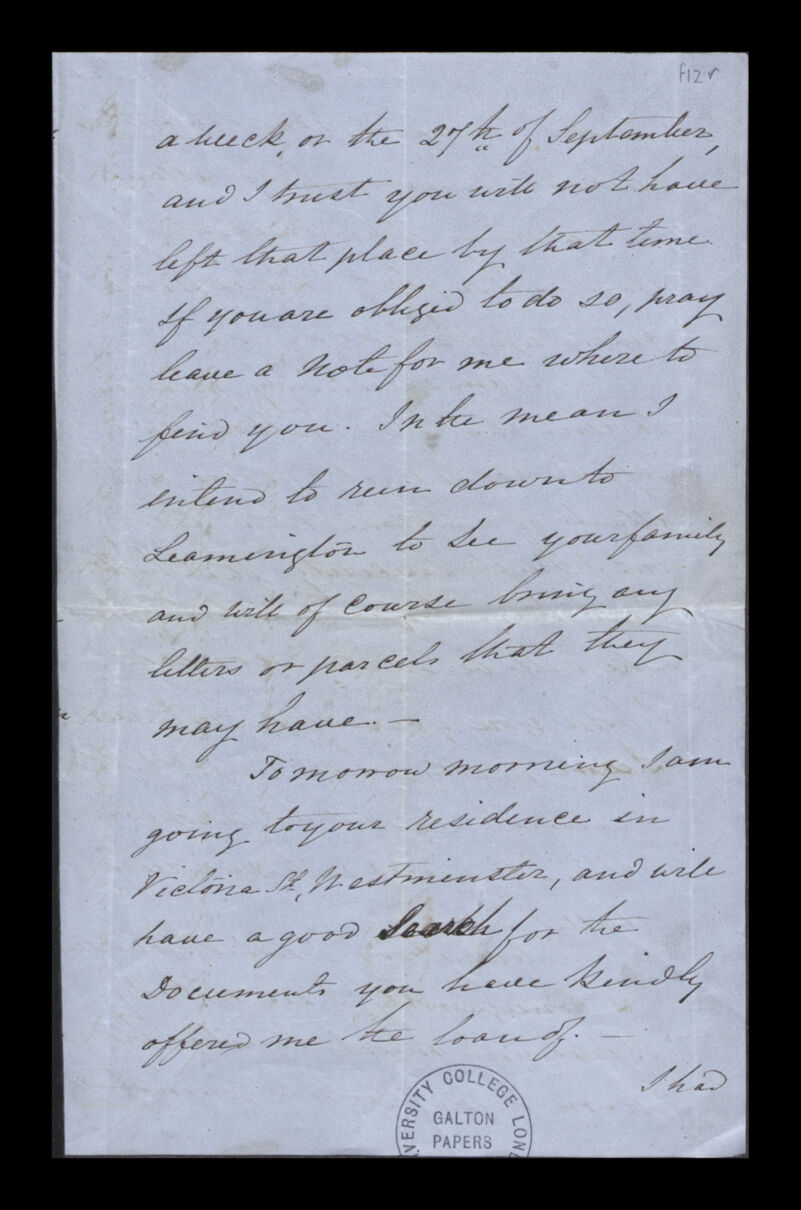 f12r
a week, or the 27th of September,
and I trust you will not have
left that place by that time.
If you are obliged to do so, pray
leave a Note for me where to
find you. In the mean I
intend to run down to
Leamington to see your family
and will of course bring any
letters or parcels that they
may have. —
Tomorrow morning I am
going to your residence in
Victoria St, Westminster, and will
have a good Search for the
Documents you have kindly
offered me the loan of. —
I had
UNIVERSITY COLLEGE LON
GALTON
PAPERS